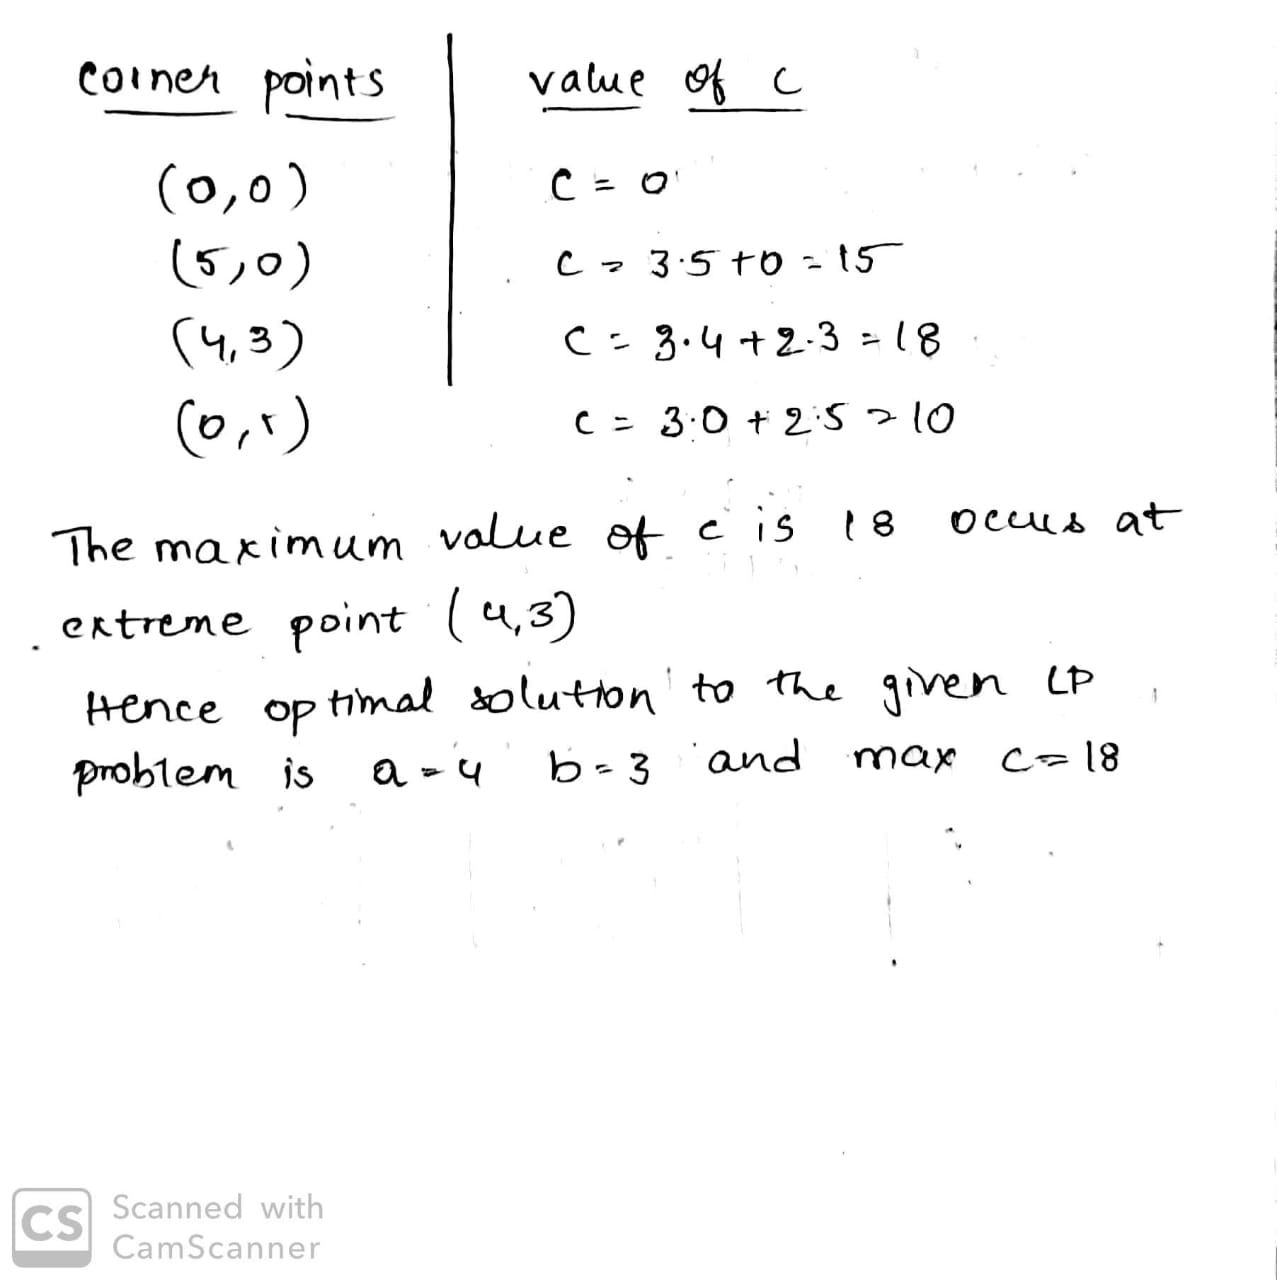 corner points | value of c
(0,0) c = 0
(5,0) c = 3·5+0 = 15
(4,3) c = 3·4+2·3 = 18
(0,5) c = 3·0 + 2·5 = 10
The maximum value of c is 18 occus at
extreme point (4,3)
Hence optimal solution to the given LP
problem is a=4 b=3 and max c=18
CS Scanned with
CamScanner